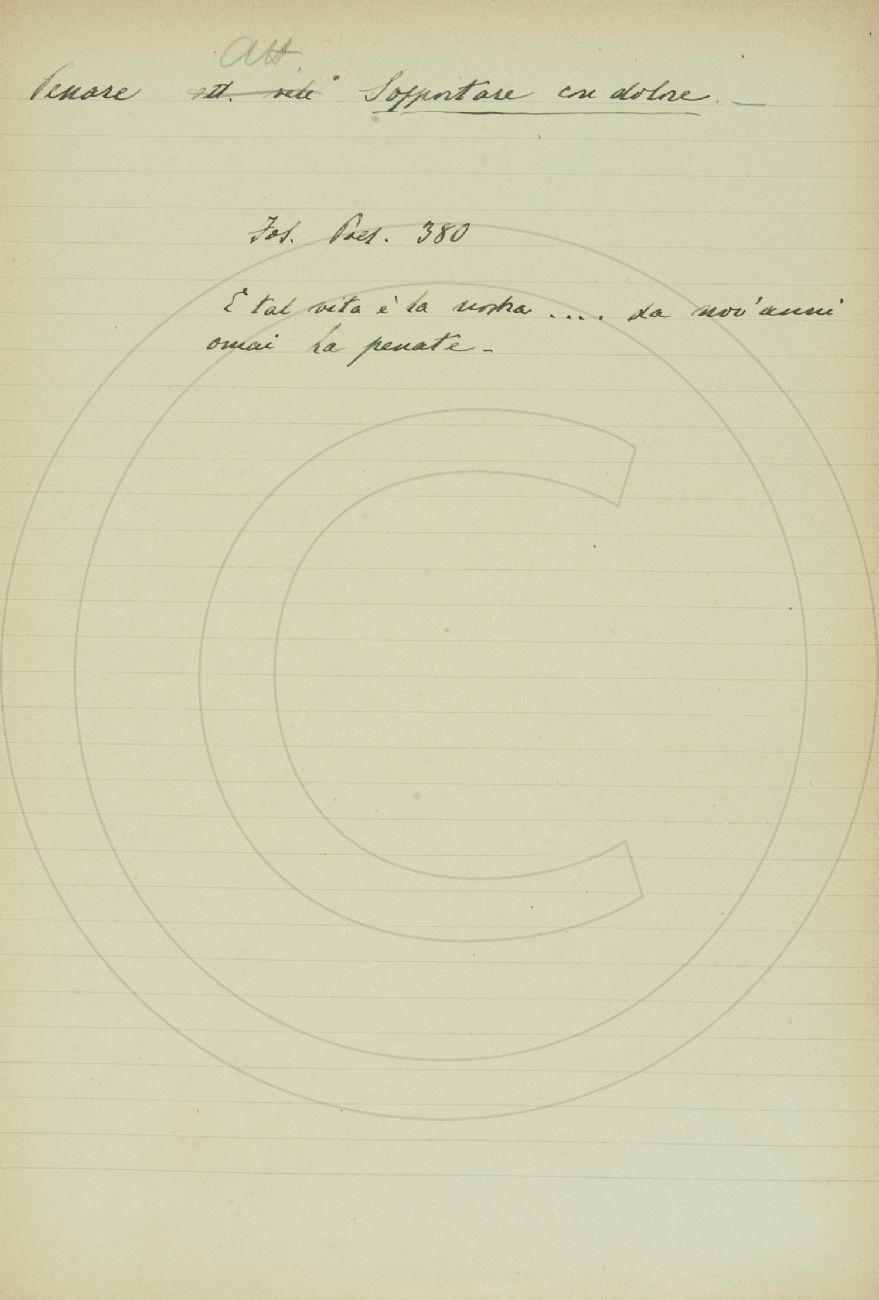 Att.
Penare att. vale Sopportare con dolore. _
Fos. Poes. 380
E tal vita è la nostra .... da nov'anni
omai la penate -